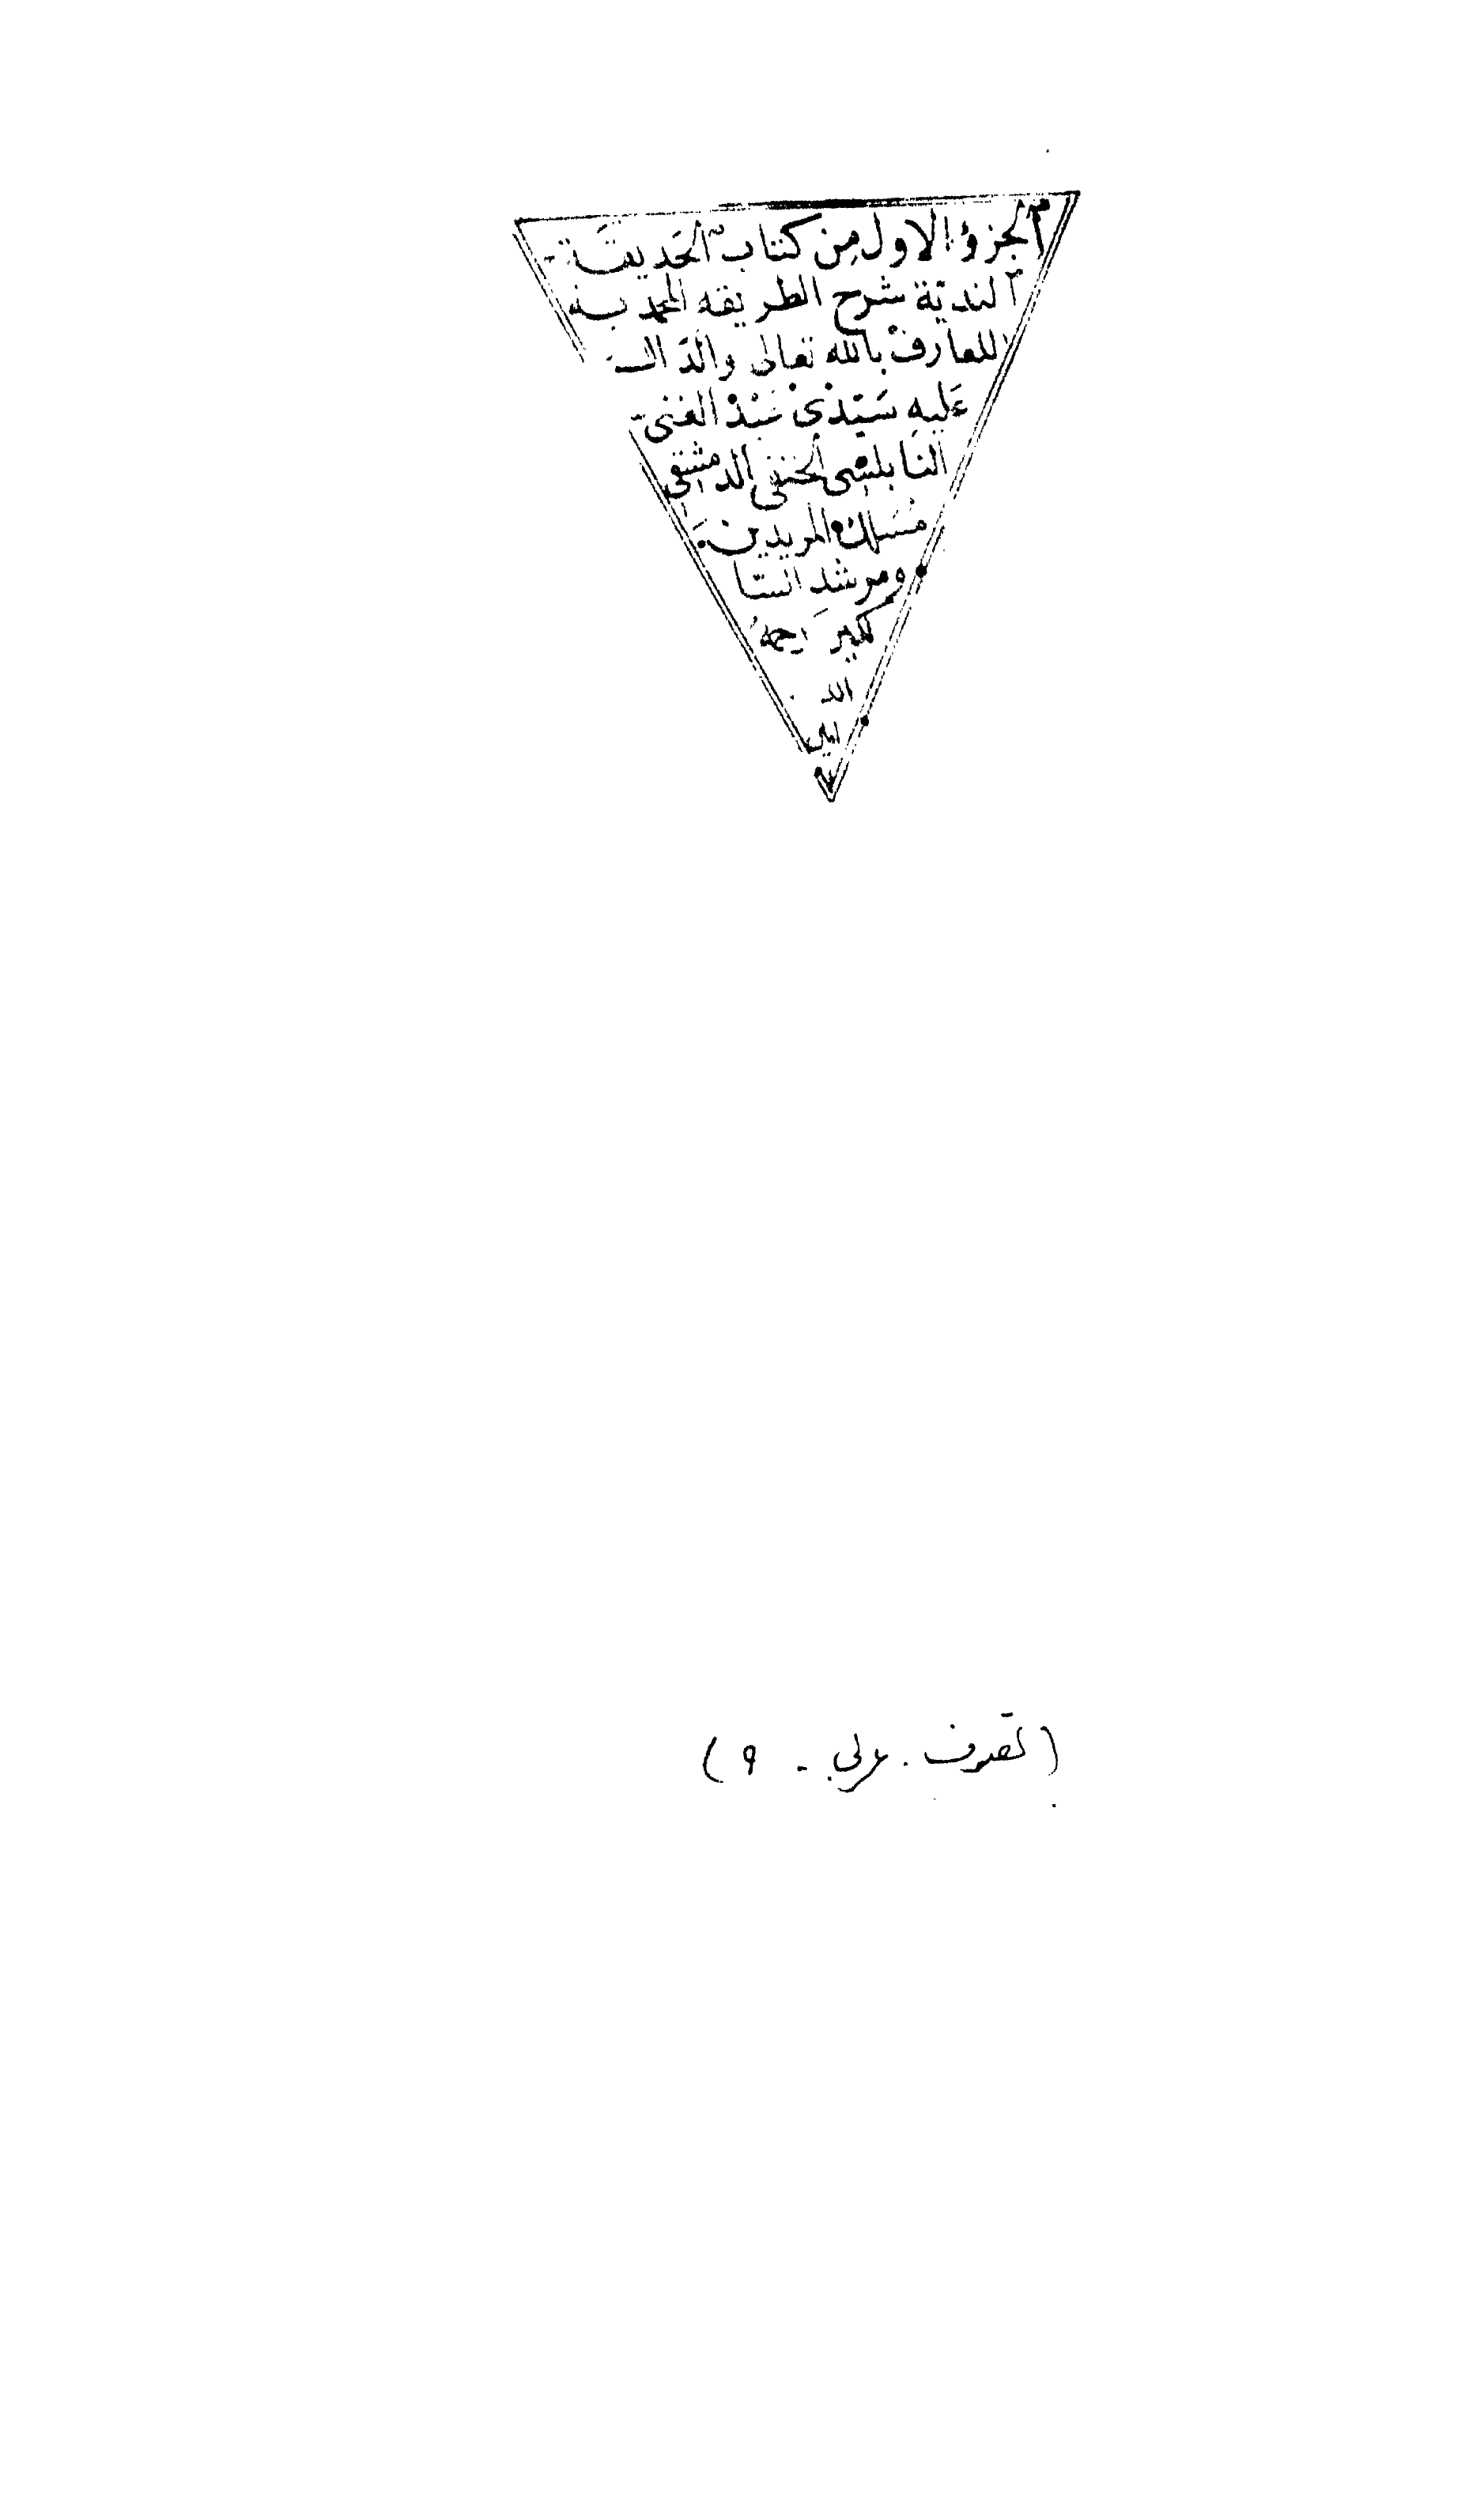 الجزؤ الاول من كتاب الحديقة
الندية شرح الطريقه المحمدية
للعارف بالله تعالى والدال
عليه سيدى عبد الغنى
النابلسى الحنفى الدمشقى
مسلك المريدين
ومرشد السا
لكين رحمة
الله
(التصوف . عربي - ٩)